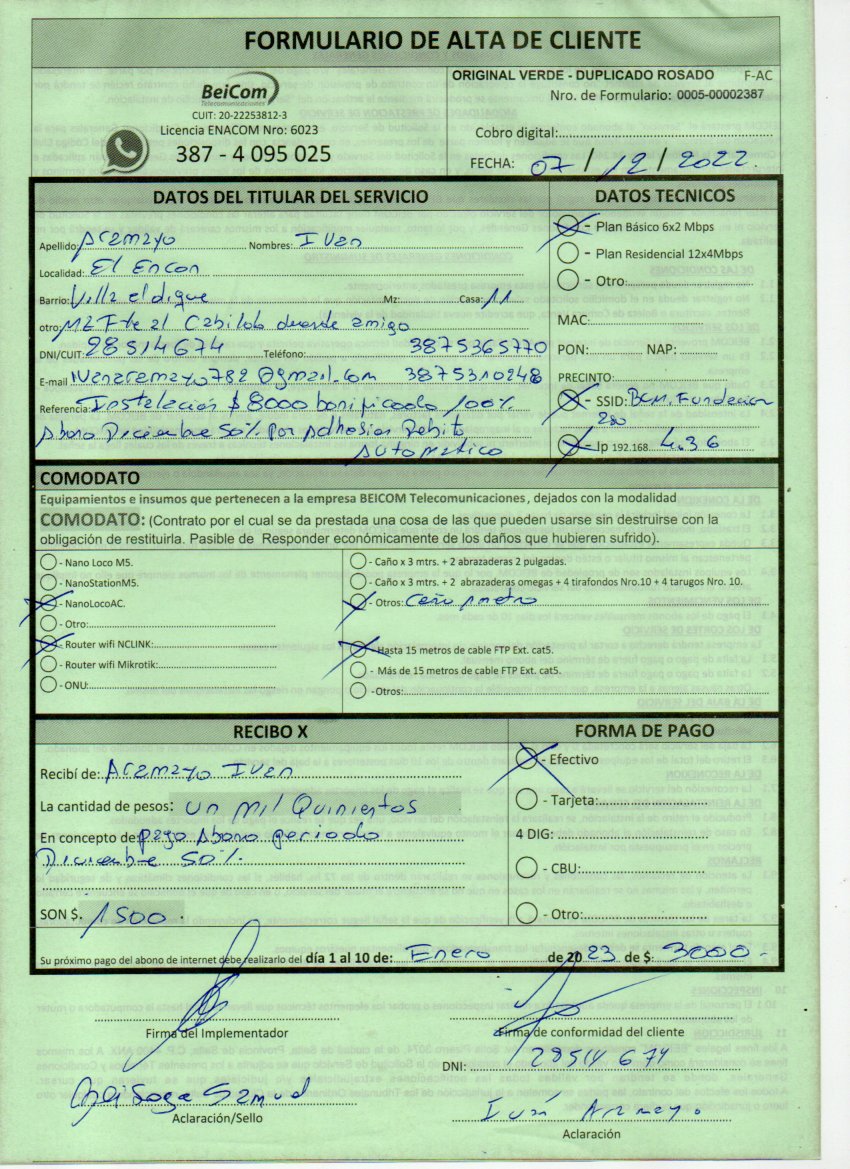 FORMULARIO DE ALTA DE CLIENTE
BeiCom
Telecomunicaciones
CUIT: 20-22253812-3
Licencia ENACOM Nro: 6023
387 - 4 095 025
ORIGINAL VERDE - DUPLICADO ROSADO F-AC
Nro. de Formulario: 0005-00002387
Cobro digital:
FECHA: 07/12/2022.
DATOS DEL TITULAR DEL SERVICIO
Apellido: Aramayo Nombres: Ivan
Localidad: El Encon
Barrio: Villa el dique Mz: Casa: 11
otro: Frte al Cabildo amigo
DNI/CUIT: 28514674 Teléfono: 3875365770
E-mail Ivanaramayo782@gmail.com 3875310248
Referencia: Instalacion $8000 bonificado 100%
Abono Diciembre 50% por Adhesion Debito
Automatico
DATOS TECNICOS
- Plan Básico 6x2 Mbps
- Plan Residencial 12x4Mbps
- Otro:
MAC:
PON: NAP:
PRECINTO:
- SSID: BCM. Fundacion
- Ip 192.168. 4.36
COMODATO
Equipamientos e insumos que pertenecen a la empresa BEICOM Telecomunicaciones, dejados con la modalidad
COMODATO: (Contrato por el cual se da prestada una cosa de las que pueden usarse sin destruirse con la
obligación de restituirla. Pasible de Responder económicamente de los daños que hubieren sufrido).
- Nano Loco M5.
- NanoStationM5.
- NanoLocoAC.
- Otro:
- Router wifi NCLINK:
- Router wifi Mikrotik:
- ONU:
- Caño x 3 mtrs. + 2 abrazaderas 2 pulgadas.
- Caño x 3 mtrs. + 2 abrazaderas omegas + 4 tirafondos Nro.10 + 4 tarugos Nro. 10.
- Otros: Caño 1 metro
- Hasta 15 metros de cable FTP Ext. cat5.
- Más de 15 metros de cable FTP Ext. cat5.
- Otros:
RECIBO X
Recibí de: Aramayo Ivan
La cantidad de pesos: un mil Quinientos
En concepto de: pago Abono periodo
Diciembre 50%
SON $. 1500.
FORMA DE PAGO
- Efectivo
- Tarjeta:
4 DIG:
- CBU:
- Otro:
Su próximo pago del abono de internet debe realizarlo del día 1 al 10 de: Enero de 2023 de $: 3000.
Firma del Implementador
Firma de conformidad del cliente
DNI: 28514674
Samuel
Aclaración/Sello
Iván Aramayo.
Aclaración